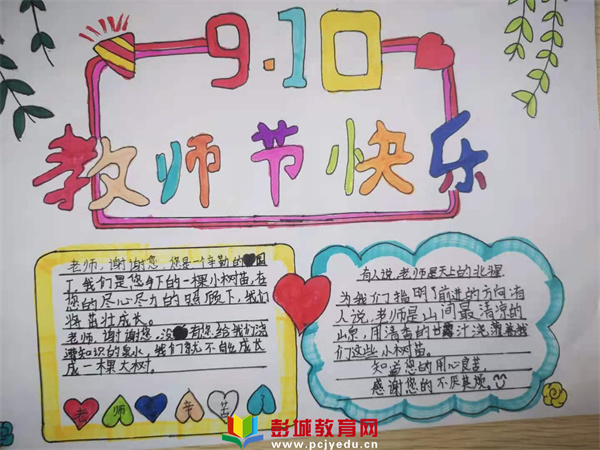 9.10
教师节快乐
老师,谢谢您,您是一个辛勤的园
丁,我们是您手下的一棵小树苗,在
您的尽心尽力的照顾下,我们
将茁壮成长。
老师,谢谢您,没有您给我们浇
灌知识的泉水,我们就不能成长
成一棵大树。
老师辛苦了
有人说,老师是天上的北斗
为我们指明了前进的方向有
人说,老师是山间最清凉的
山泉,用清香的甘露汁浇灌着我
们这些小树苗。
知道您的用心良苦
感谢您的不厌其烦
彭城教育网
www.pcjyedu.cn